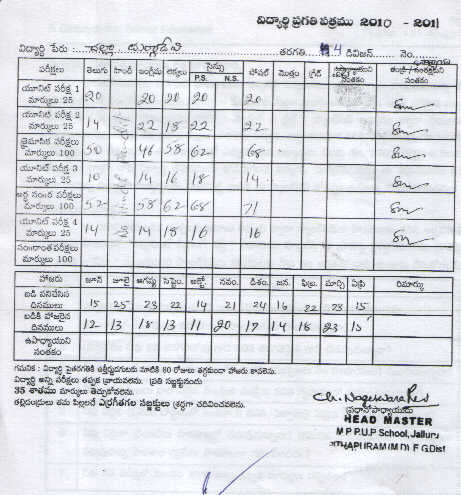 విద్యార్థి ప్రగతి పత్రము 2010 - 2011
విద్యార్థి పేరు : తరగతి 4 డివిజన్ నెం.
పరీక్షలు తెలుగు హిందీ ఇంగ్లీషు లెక్కలు సైన్సు P.S. N.S. సోషల్ మొత్తం గ్రేడ్ సంతకం తండ్రి / సంరక్షకుని సంతకం
యూనిట్ పరీక్ష 1 మార్కులు 25 20 20 20 22 20
యూనిట్ పరీక్ష 2 మార్కులు 25 14 22 18 22 22
త్రైమాసిక పరీక్ష మార్కులు 100 50 46 58 62 68
యూనిట్ పరీక్ష 3 మార్కులు 25 10 14 16 18 14
అర్థ సంIIర పరీక్ష మార్కులు 100 52 58 62 68 71
యూనిట్ పరీక్ష 4 మార్కులు 25 14 14 18 16 16
సంIIరాంత పరీక్షలు మార్కులు 100
హాజరు జూన్ జూలై ఆగష్టు సెప్టెం. అక్టో. నవం. డిశెం. జన. ఫిబ్ర. మార్చి ఏప్రి రిమార్కు
బడి పనిచేసిన దినములు 15 25 23 22 14 21 24 16 22 23 15
బడికి హాజరైన దినములు 12 13 18 13 11 20 17 14 18 23 15
ఉపాధ్యాయుని సంతకం
గమనిక : విద్యార్థి పైతరగతికి ఉత్తీర్ణుడగుటకు నూటికి 80 రోజులు తగ్గకుండా హాజరు కావలెను.
విద్యార్థి అన్ని పరీక్షలు తప్పక వ్రాయవలెను. ప్రతి సబ్జెక్టునందు
35 శాతము మార్కులు తెచ్చుకోవలెను.
తల్లిదండ్రులు తమ పిల్లలచే ఎర్రగీతగల సబ్జెక్టులు శ్రద్ధగా చదివించవలెను.
Ch. Nageswara Rao
ప్రధానోపాధ్యాయుడు
HEAD MASTER
M P P.U.P School, Jalluru
PITHAPURAM (MD) E G.Dist